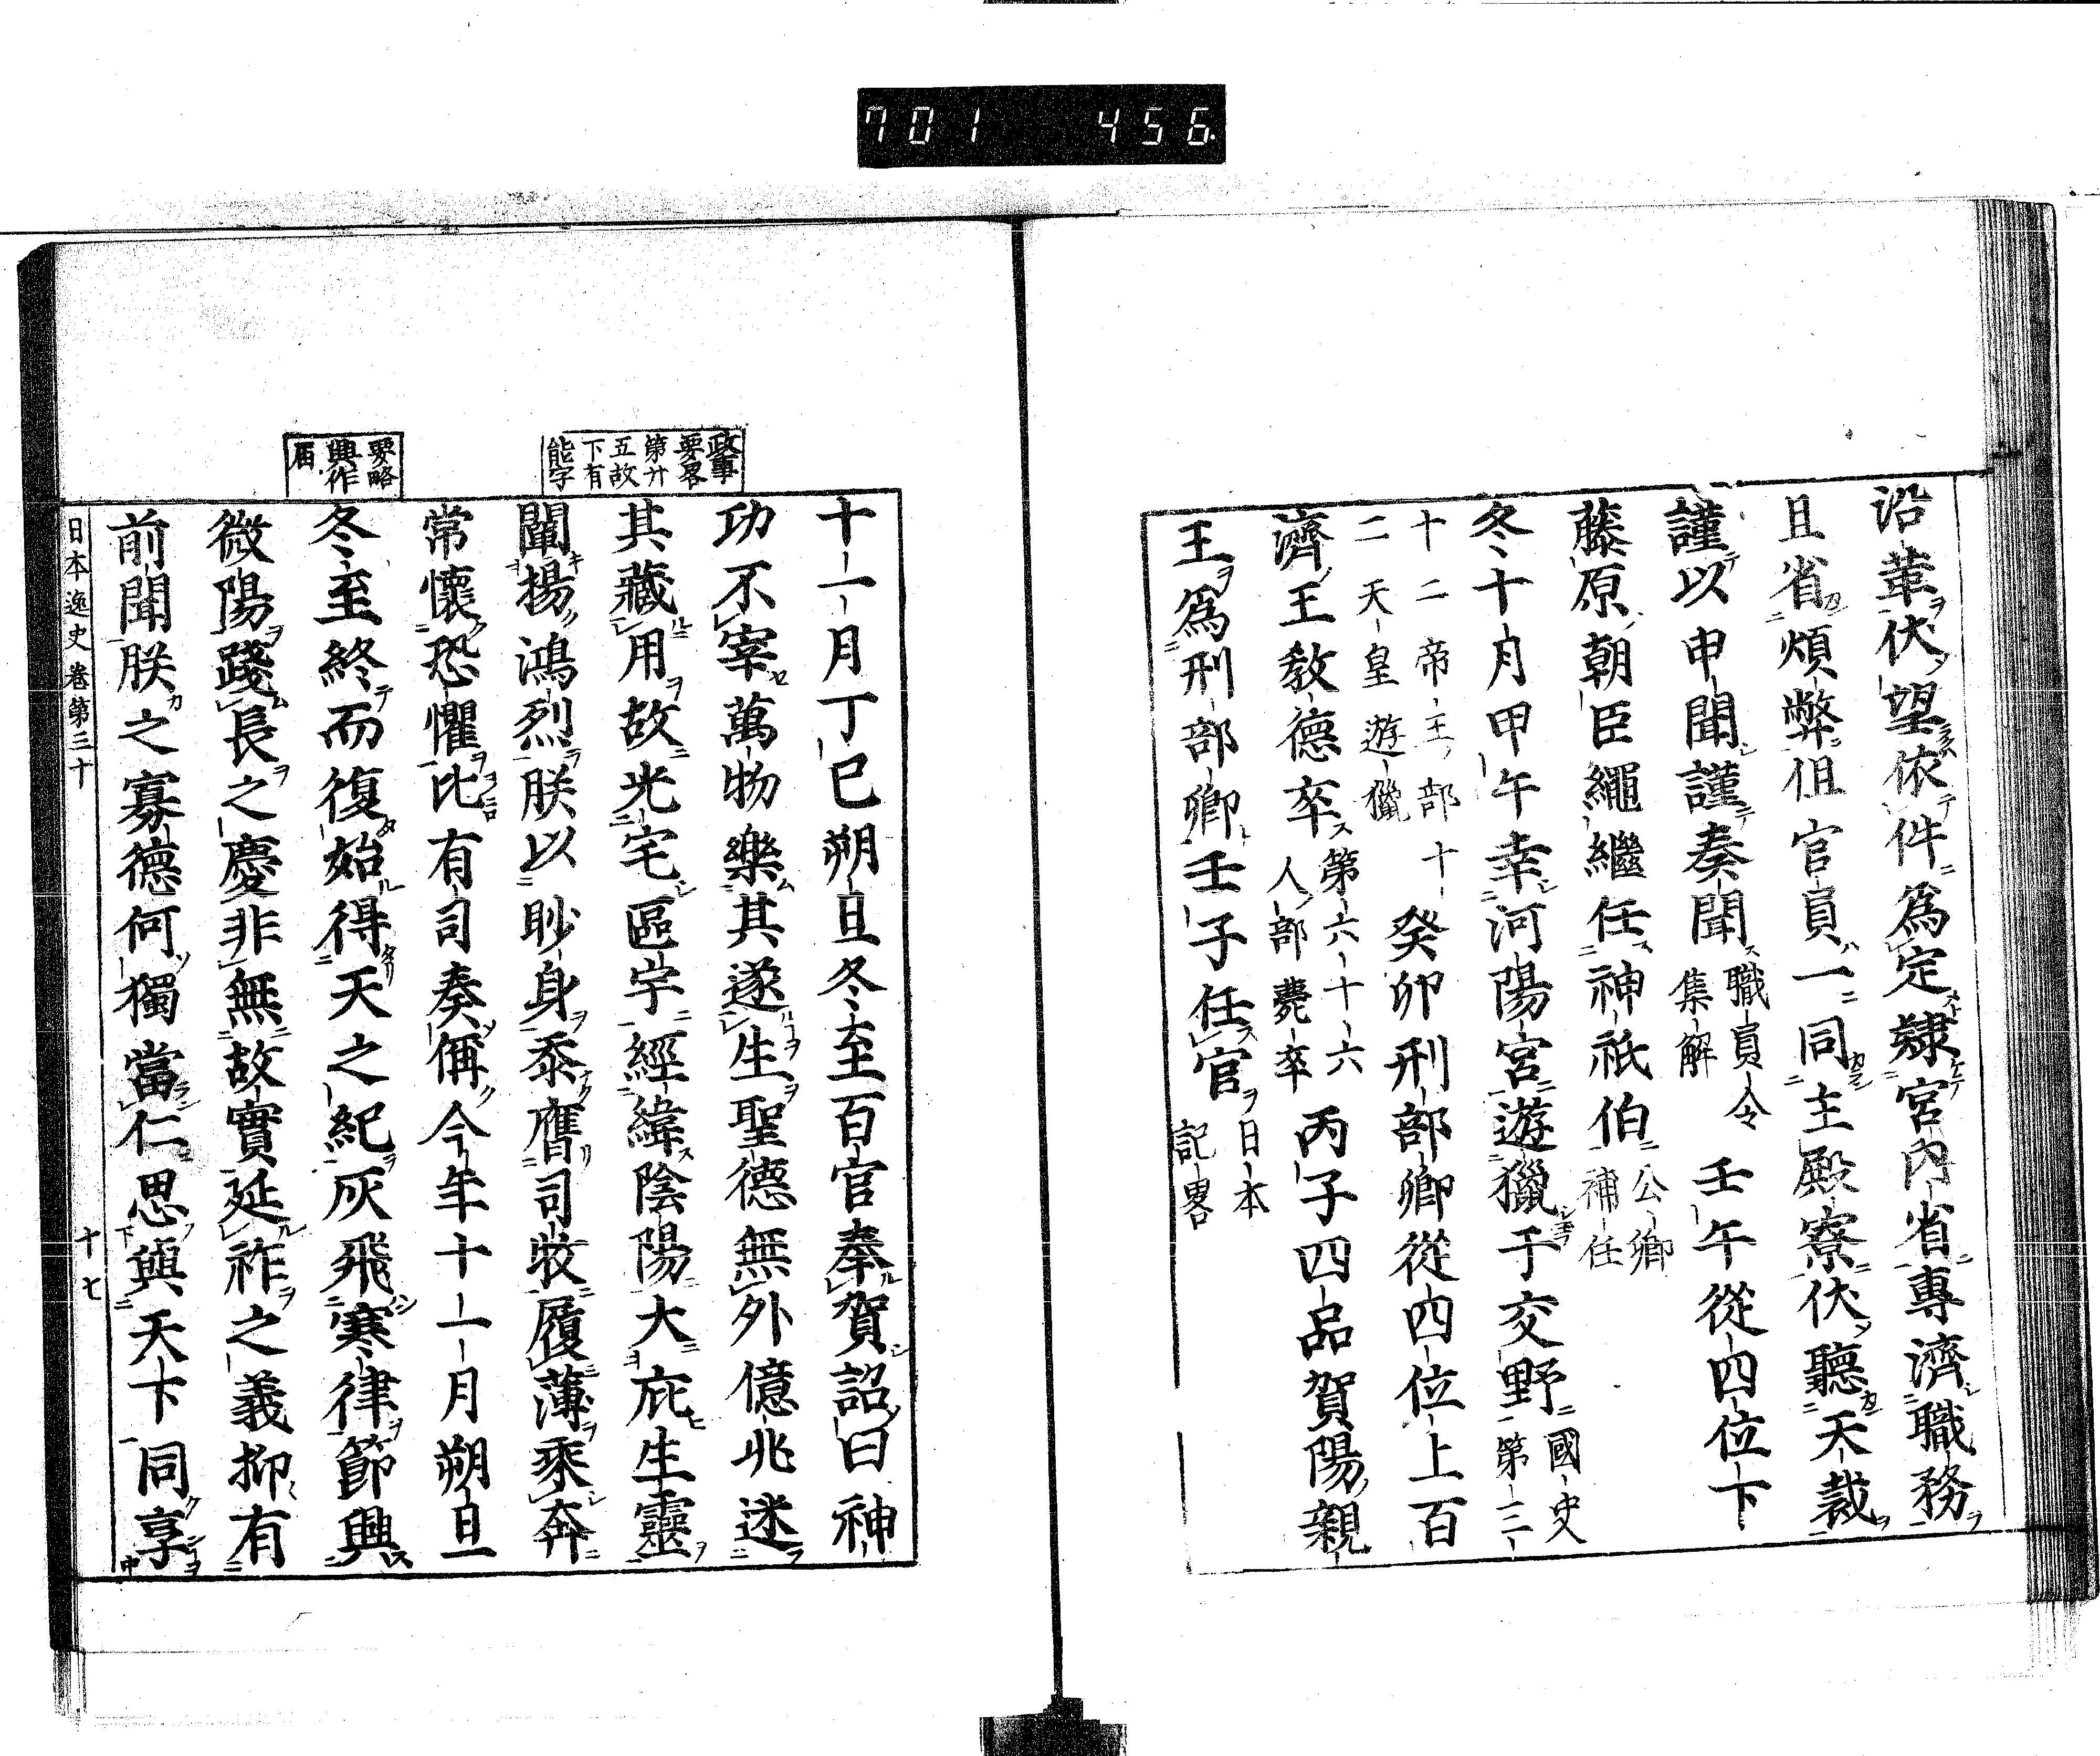 701 456
沿革伏望依件爲定隸宮内省專濟職務
且省煩弊但官員一同主殿寮伏聽天裁
謹以申聞謹奏聞職員令集解 壬午從四位下
藤原朝臣繩繼任神祇伯公卿補任
冬十月甲午幸河陽宮遊獵于交野國史第三
十二帝王部十二天皇遊獵 癸卯刑部卿從四位上百
濟王教德卒第六十六人部薨卒 丙子四品賀陽親
王爲刑部卿壬子任官日本記畧
政事要畧第廿五故下有能字
要略興作屆
十一月丁巳朔旦冬至百官奉賀詔曰神
功不宰萬物樂其遂生聖德無外億兆迷
其藏用故光宅區宇經緯陰陽大庇生靈
闡揚鴻烈朕以眇身忝膺司牧履薄乘奔
常懷恐懼比有司奏偁今年十一月朔旦
冬至終而復始得天之紀灰飛寒律節興
微陽踐長之慶非無故實延祚之義抑有
前聞朕之寡德何獨當仁思與天下同享
日本逸史卷第三十 十七